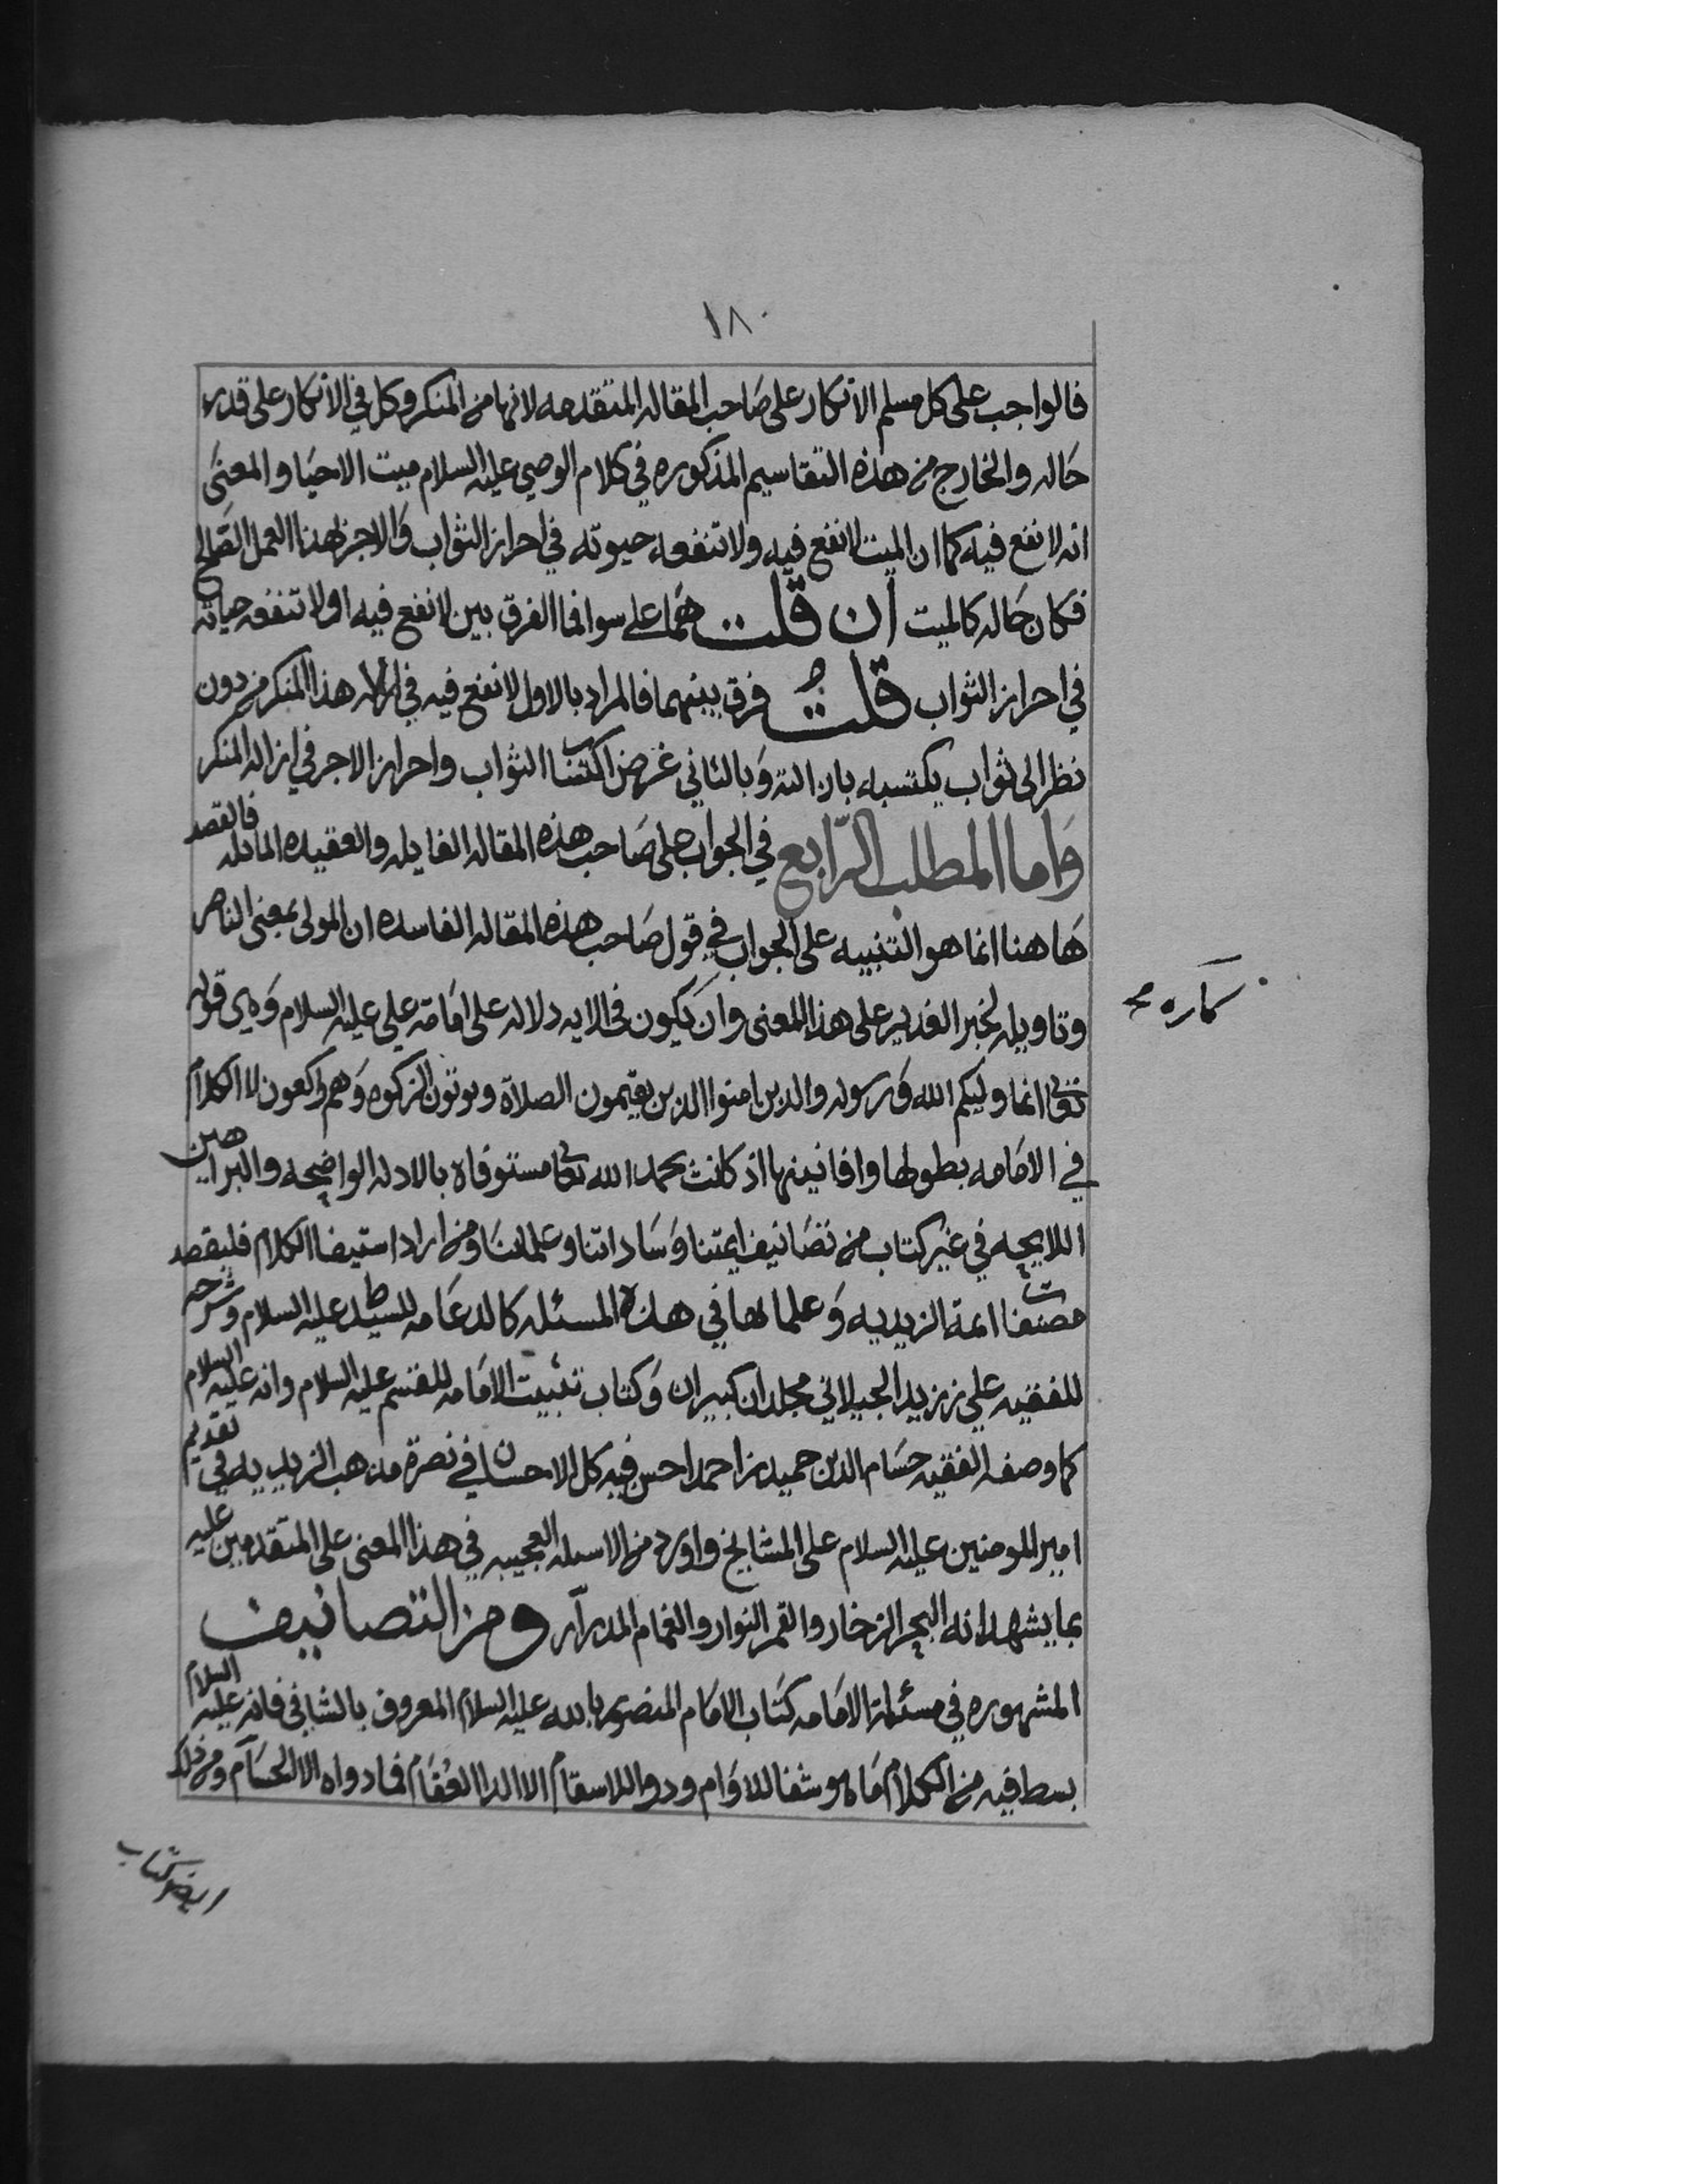 ١٨٠
فالواجب على كل مسلم الانكار على صاحب المقاله المتقدمه لانها من المنكر وكل في الانكار على قدر
حاله والخارج من هذه التقاسيم المذكوره في كلام الوصي عليه السلام ميت الاحيا والمعنى
انه لا نفع فيه كما ان الميت لا نفع فيه ولا تنفعه حيوته في احراز الثواب والاجر لهذا العمل الصالح
فكان حاله كالميت ان قلت هما على سوا فما الفرق بين لا نفع فيه او لا تنفعه حياته
في احراز الثواب قلت فرق بينهما فالمراد بالاول لا نفع فيه في ازاله هذا المنكر من دون
نظر الى ثواب يكتسبه بازالته وبالثاني غرض اكتساب الثواب واحراز الاجر في ازاله المنكر
واما المطلب الرابع في الجواب على صاحب هذه المقاله الفايله والعقيده المايله فالقصد
هاهنا انما هو التنبيه على الجواب في قول صاحب هذه المقاله الفاسده ان المولى بمعنى الناصر
وتاويله لخبر الغدير على هذا المعنى وان يكون في الايه دلاله على امامة علي عليه السلام وهي قوله
تعالى انما وليكم الله ورسوله والذين امنوا الذين يقيمون الصلاة ويوتون الزكوه وهم راكعون لا الكلام
في الامامه بطولها وافانينها اذ كانت بحمد الله تعالى مستوفاه بالادله الواضحه والبراهين
اللايحه في غير كتاب من تصانيف ايمتنا وساداتنا وعلمائنا ومن اراد استيفا الكلام فليقصد
مصنفات ائمة الزيديه وعلمائها في هذه المسئله كالدعامه للسيد ط عليه السلام وشرحه
للفقيه علي بن زيد الجيلاني مجلدان كبيران وكتاب تثبيت الامامه للقسم عليه السلام وانه عليه السلام
كما وصفه الفقيه حسام الدين حميد بن احمد احسن فيه كل الاحسان في نصرة مذهب الزيديه في تقديم
امير المومنين عليه السلام على المشايخ واورد من الاسئله العجيبه في هذا المعنى على المتقدمين عليه
بما يشهد انه البحر الزخار والقمر النوار والغمام المدرار ومن التصانيف
المشهوره في مسئلة الامامه كتاب الامام المنصور بالله عليه السلام المعروف بالشافي فانه عليه السلام
بسط فيه من الكلام ما هو شفا للاوام ودوا للاسقام الا الدا العقام فما دواه الا الحسام ومن ذلك
ايضا كتاب